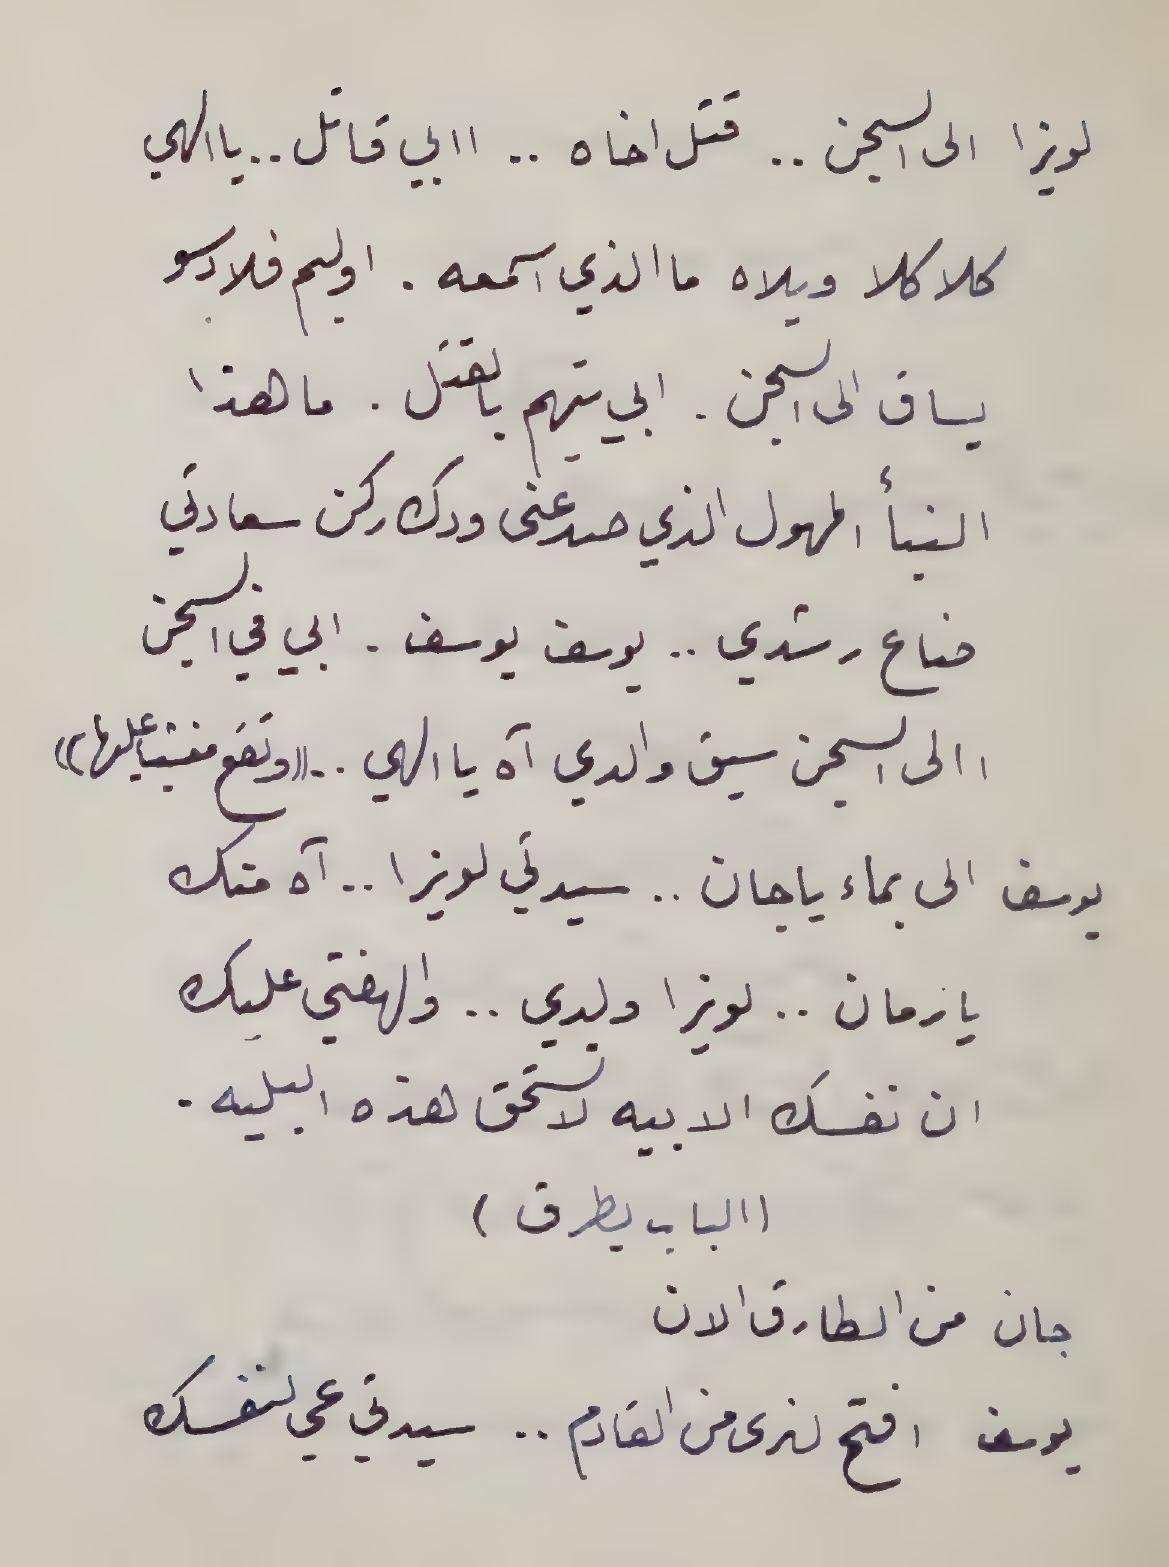 لويزا الى السجن .. قتل اخاه .. اابي قاتل .. يا الهي
كلا كلا ويلاه ما الذي اسمعه . اوليم فلادسو
يساق الى السجن . ابي يتهم بالقتل . ما هذا
النبأ المهول الذي صدعنى ودك ركن سعادتي
ضاع رشدي .. يوسف يوسف . ابي في السجن
االى السجن سيق والدي آه يا الهي .. ((وتقع مغشيا عليها))
يوسف الى بماء يا جان .. سيدتي لويزا .. آه منك
يا زمان .. لويزا ولدي .. والهفتي عليك
ان نفسك الابيه لا تستحق هذه البليه .
(الباب يطرق)
جان من الطارق الان
يوسف افتح لنرى من القادم .. سيدتي عمي لنفسك